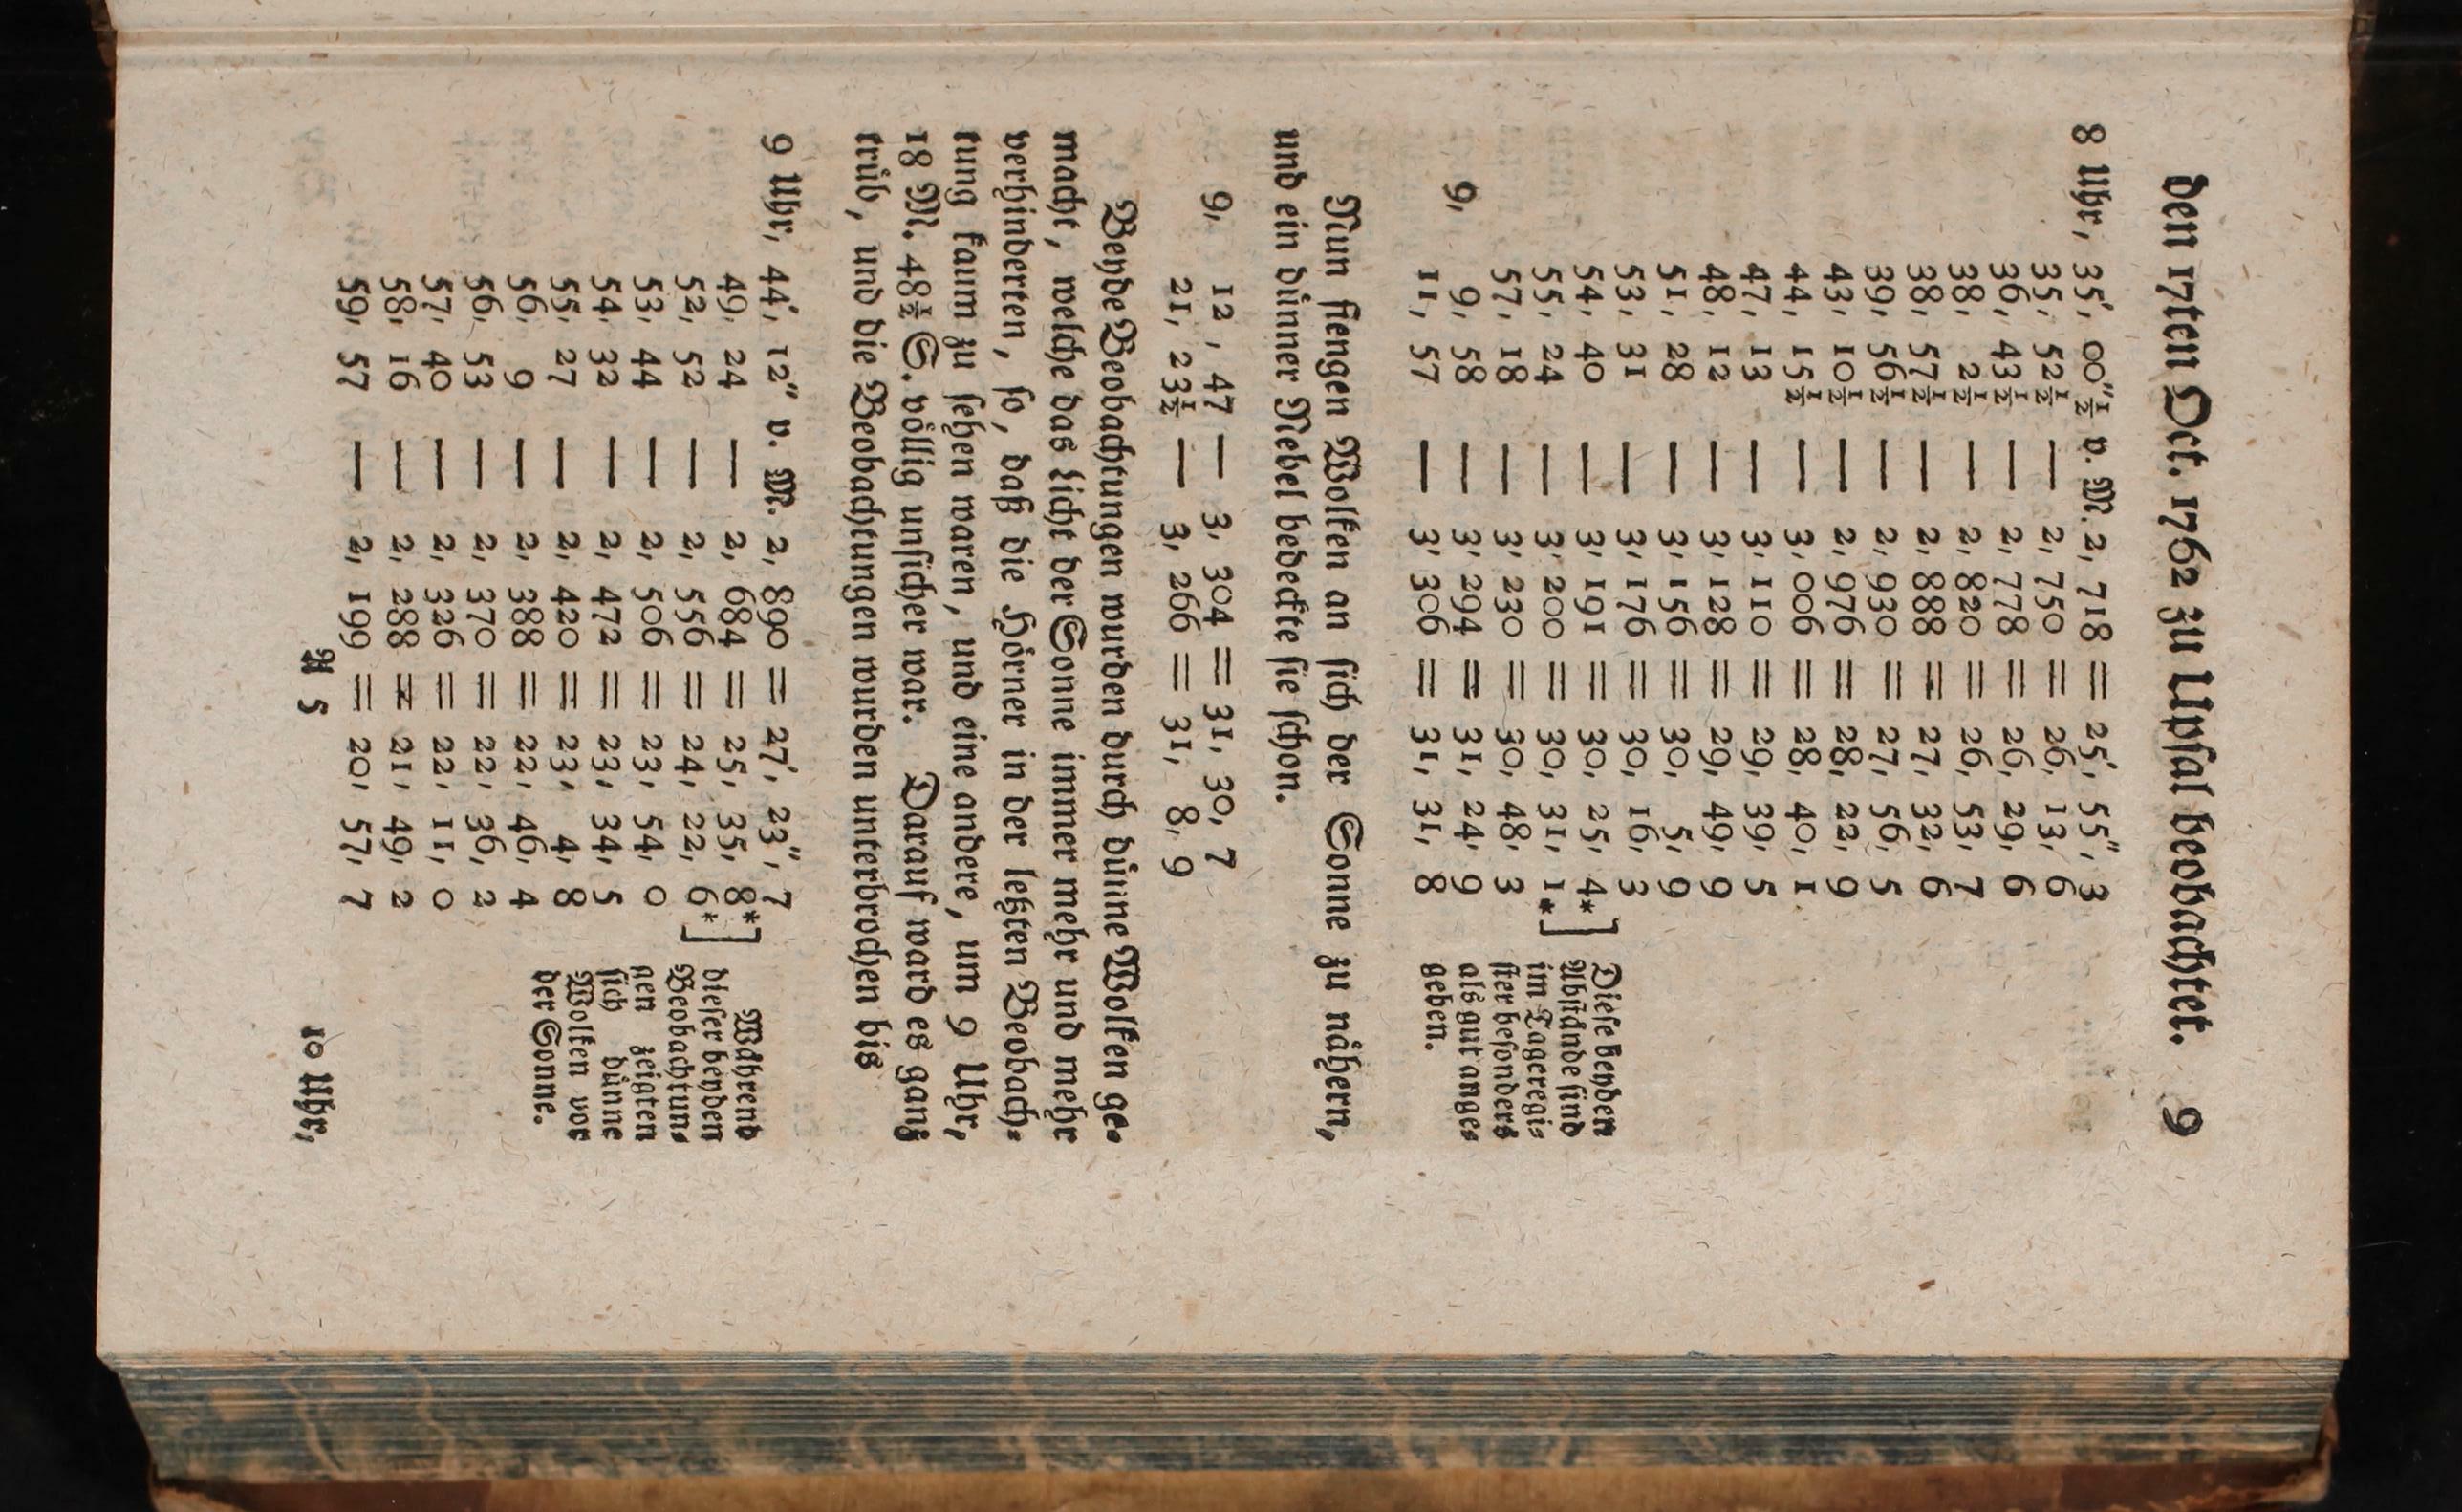 den 17ten Oct. 1762 zu Upsal beobachtet. 9
8 Uhr, 35′, 00″½ v. M. 2, 718 = 25′, 55″, 3
35, 52½ — 2, 750 = 26, 13, 6
36, 43½ — 2, 778 = 26, 29, 6
38, 2½ — 2, 820 = 26, 53, 7
38, 57½ — 2, 888 = 27, 32, 6
39, 56½ — 2, 930 = 27, 56, 5
43, 10½ — 2, 976 = 28, 22, 9
44, 15½ — 3, 006 = 28, 40, 1
47, 13 — 3, 110 = 29, 39, 5
48, 12 — 3, 128 = 29, 49, 9
51, 28 — 3, 156 = 30, 5, 9
53, 31 — 3, 176 = 30, 16, 3
54, 40 — 3, 191 = 30, 25, 4*]
55, 24 — 3, 200 = 30, 31, 1*]
57, 18 — 3, 230 = 30, 48, 3
9, 9, 58 — 3, 294 = 31, 24, 9
11, 57 — 3, 306 = 31, 31, 8
Diese beyden
Abstände sind
im Tageregi-
ster besonders
als gut ange-
geben.
Nun fiengen Wolken an sich der Sonne zu nähern,
und ein dünner Nebel bedeckte sie schon.
9, 12, 47 — 3, 304 = 31, 30, 7
21, 23½ — 3, 266 = 31, 8, 9
Beyde Beobachtungen wurden durch dünne Wolken ge-
macht, welche das Licht der Sonne immer mehr und mehr
verhinderten, so, daß die Hörner in der letzten Beobach-
tung kaum zu sehen waren, und eine andere, um 9 Uhr,
18 M. 48½ S. völlig unsicher war. Darauf ward es ganz
trüb, und die Beobachtungen wurden unterbrochen bis
9 Uhr, 44′, 12″ v. M. 2, 890 = 27′, 23″, 7
49, 24 — 2, 684 = 25, 35, 8*]
52, 52 — 2, 556 = 24, 22, 6*]
53, 44 — 2, 506 = 23, 54, 0
54, 32 — 2, 472 = 23, 34, 5
55, 27 — 2, 420 = 23, 4, 8
56, 9 — 2, 388 = 22, 46, 4
56, 53 — 2, 370 = 22, 36, 2
57, 40 — 2, 326 = 22, 11, 0
58, 16 — 2, 288 = 21, 49, 2
59, 57 — 2, 199 = 20, 57, 7
Während
dieser beyden
Beobachtun-
gen zeigten
sich dünne
Wolken vor
der Sonne.
A 5 10 Uhr,